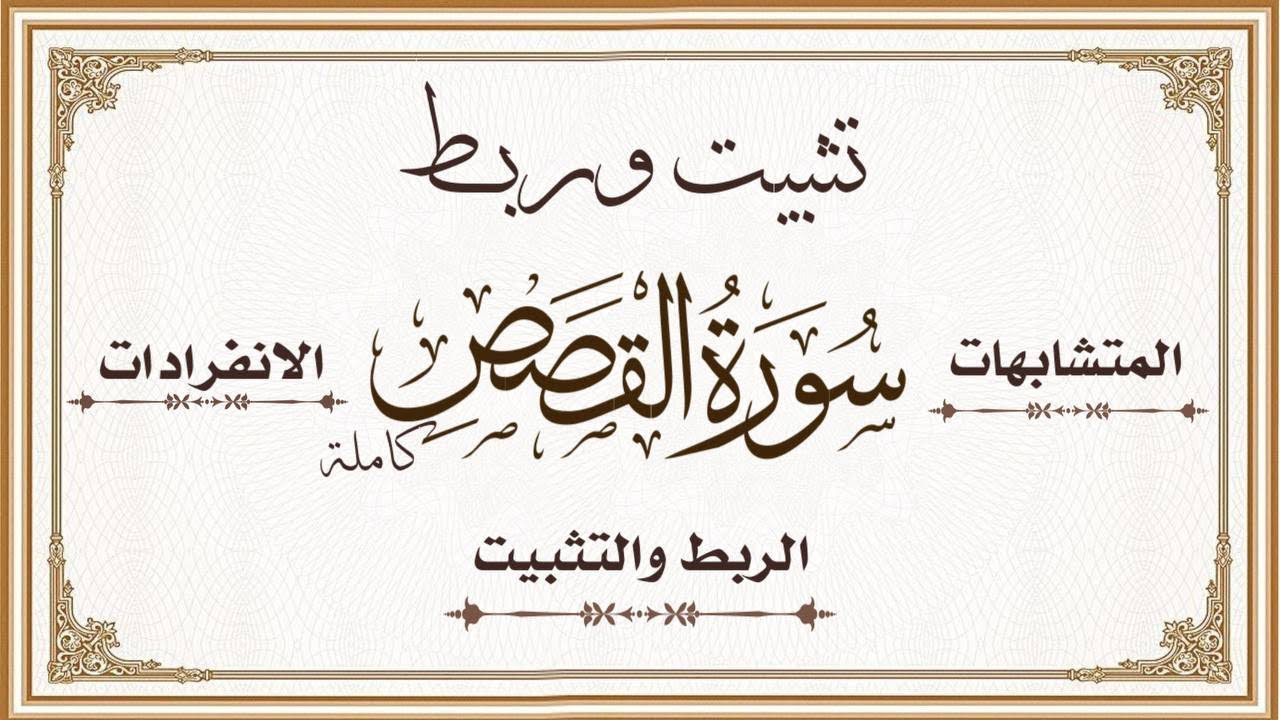 تثبيت وربط
سُورَةُ القَصَصِ
كاملة
المتشابهات
الانفرادات
الربط والتثبيت